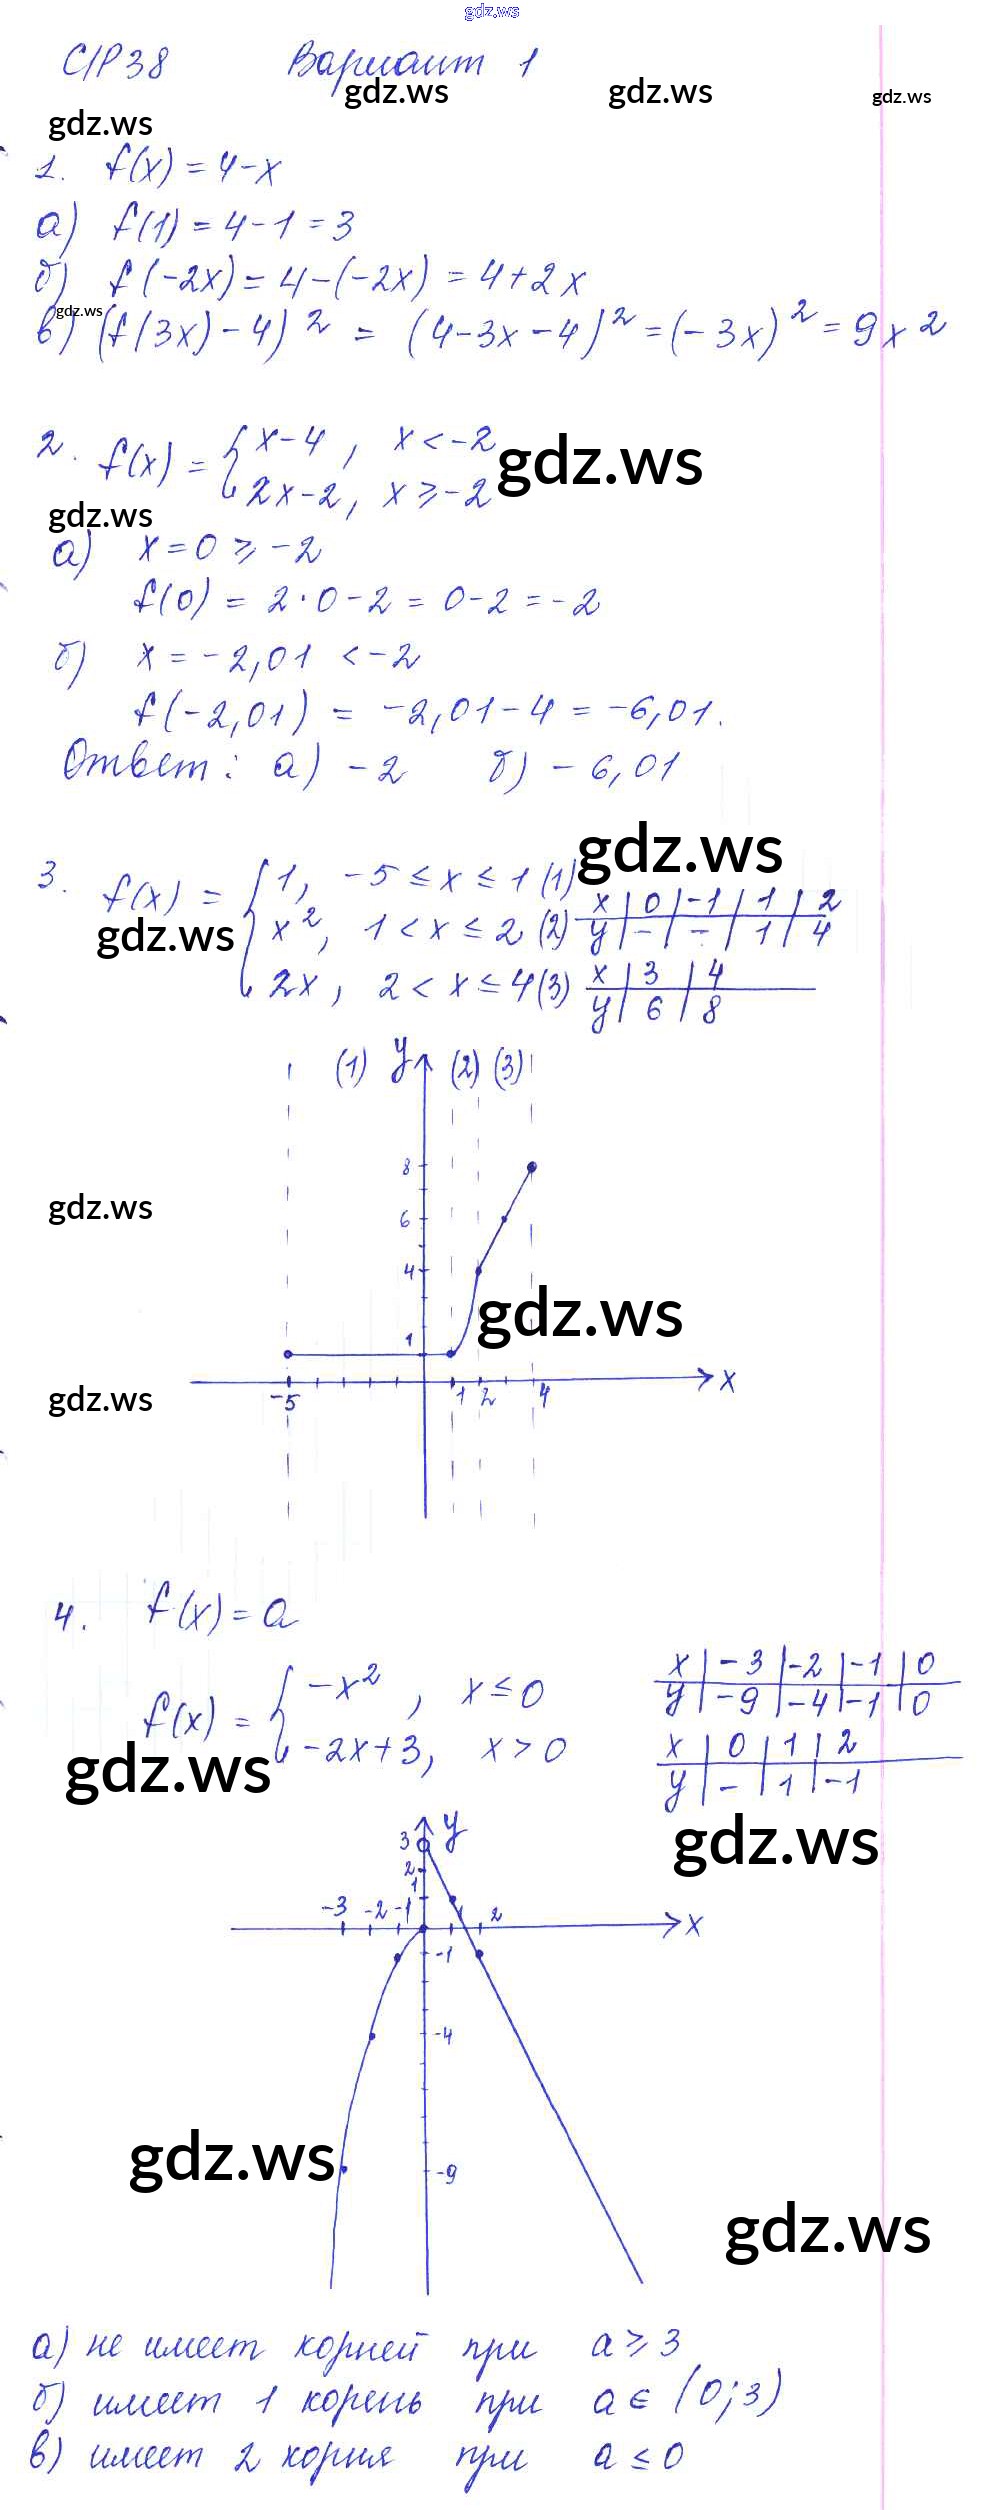 gdz.ws
С/Р 38 Вариант 1
gdz.ws gdz.ws gdz.ws
gdz.ws
1. f(x) = 4 - x
а) f(1) = 4 - 1 = 3
б) f(-2x) = 4 - (-2x) = 4 + 2x
gdz.ws
в) (f(3x) - 4)² = (4 - 3x - 4)² = (-3x)² = 9x²
2. f(x) = { x - 4, x < -2
2x - 2, x ≥ -2
gdz.ws
gdz.ws
а) x = 0 ≥ -2
f(0) = 2 · 0 - 2 = 0 - 2 = -2
б) x = -2,01 < -2
f(-2,01) = -2,01 - 4 = -6,01.
Ответ: а) -2 б) -6,01
gdz.ws
3. f(x) = { 1, -5 ≤ x ≤ 1 (1)
x², 1 < x ≤ 2 (2)
2x, 2 < x ≤ 4 (3)
gdz.ws
x | 0 | -1 | 1 | 2
y | - | - | 1 | 4
x | 3 | 4
y | 6 | 8
(1) y (2) (3)
8
gdz.ws
6
4
gdz.ws
1
x
gdz.ws
-5 1 2 4
4. f(x) = a
f(x) = { -x², x ≤ 0
-2x + 3, x > 0
x | -3 | -2 | -1 | 0
y | -9 | -4 | -1 | 0
x | 0 | 1 | 2
y | - | 1 | -1
gdz.ws
gdz.ws
3 y
2
1
-3 -2 -1 1 2
x
-1
-4
gdz.ws
-9
gdz.ws
а) не имеет корней при a ≥ 3
б) имеет 1 корень при a ∈ (0; 3)
в) имеет 2 корня при a ≤ 0